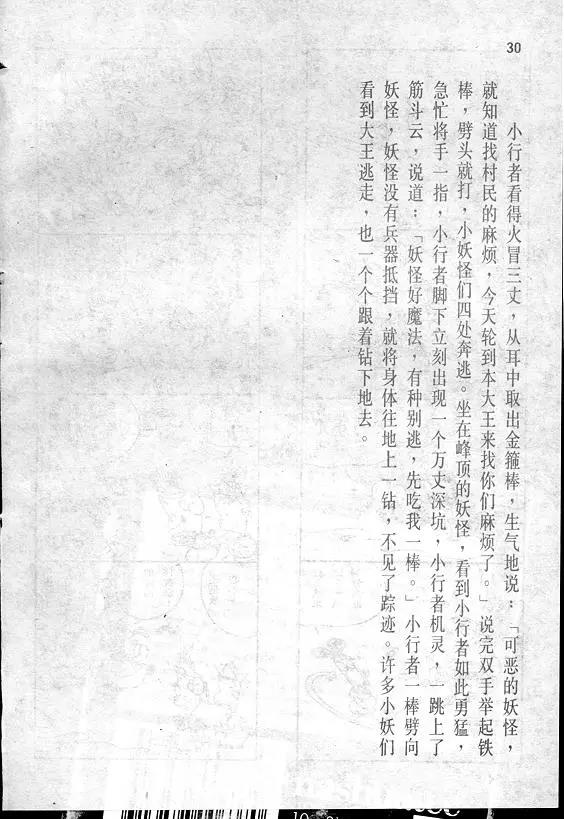 30
小行者看得火冒三丈，从耳中取出金箍棒，生气地说：「可恶的妖怪，
就知道找村民的麻烦，今天轮到本大王来找你们麻烦了。」说完双手举起铁
棒，劈头就打，小妖怪们四处奔逃。坐在峰顶的妖怪，看到小行者如此勇猛，
急忙将手一指，小行者脚下立刻出现一个万丈深坑，小行者机灵，一跳上了
筋斗云，说道：「妖怪好魔法，有种别逃，先吃我一棒。」小行者一棒劈向
妖怪，妖怪没有兵器抵挡，就将身体往地上一钻，不见了踪迹。许多小妖们
看到大王逃走，也一个个跟着钻下地去。